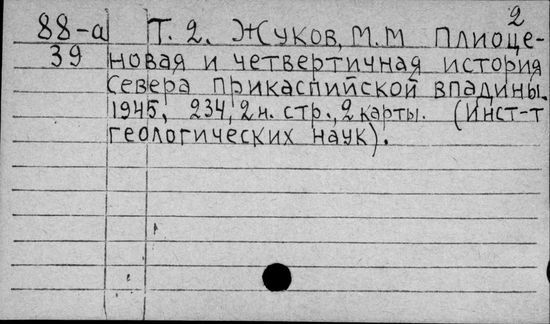 2
88-а Т. 2. Жуков, М.М Плиоце-
39 новая и четвертичная история
севера Прикаспийской впадины.
1945, 234, 2 н. стр., 2 карты. (Инст-т
геологических наук).